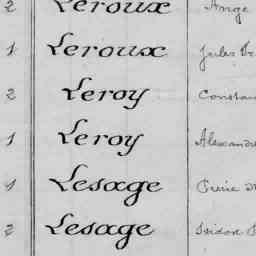 2 Leroux Ange
1 Leroux Jules
2 Leroy Constan
1 Leroy Alexandre
1 Lesage Pierre
2 Lesage Isidore